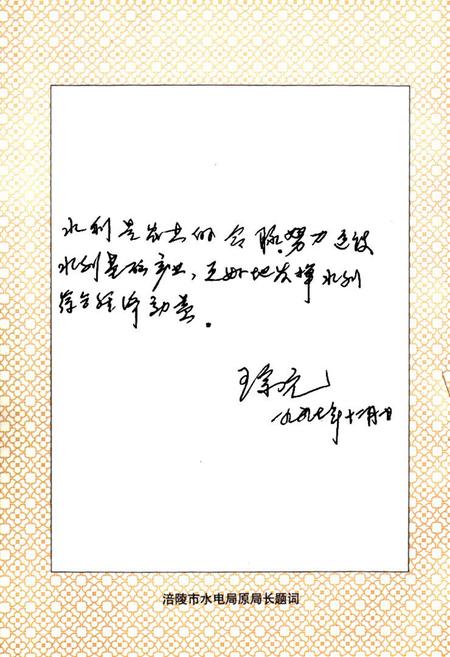 水利是农业的命脉.努力建设
水利基础产业,更好地发挥水利
综合经济功益.
王宗元
一九九七年十一月一日
涪陵市水电局原局长题词